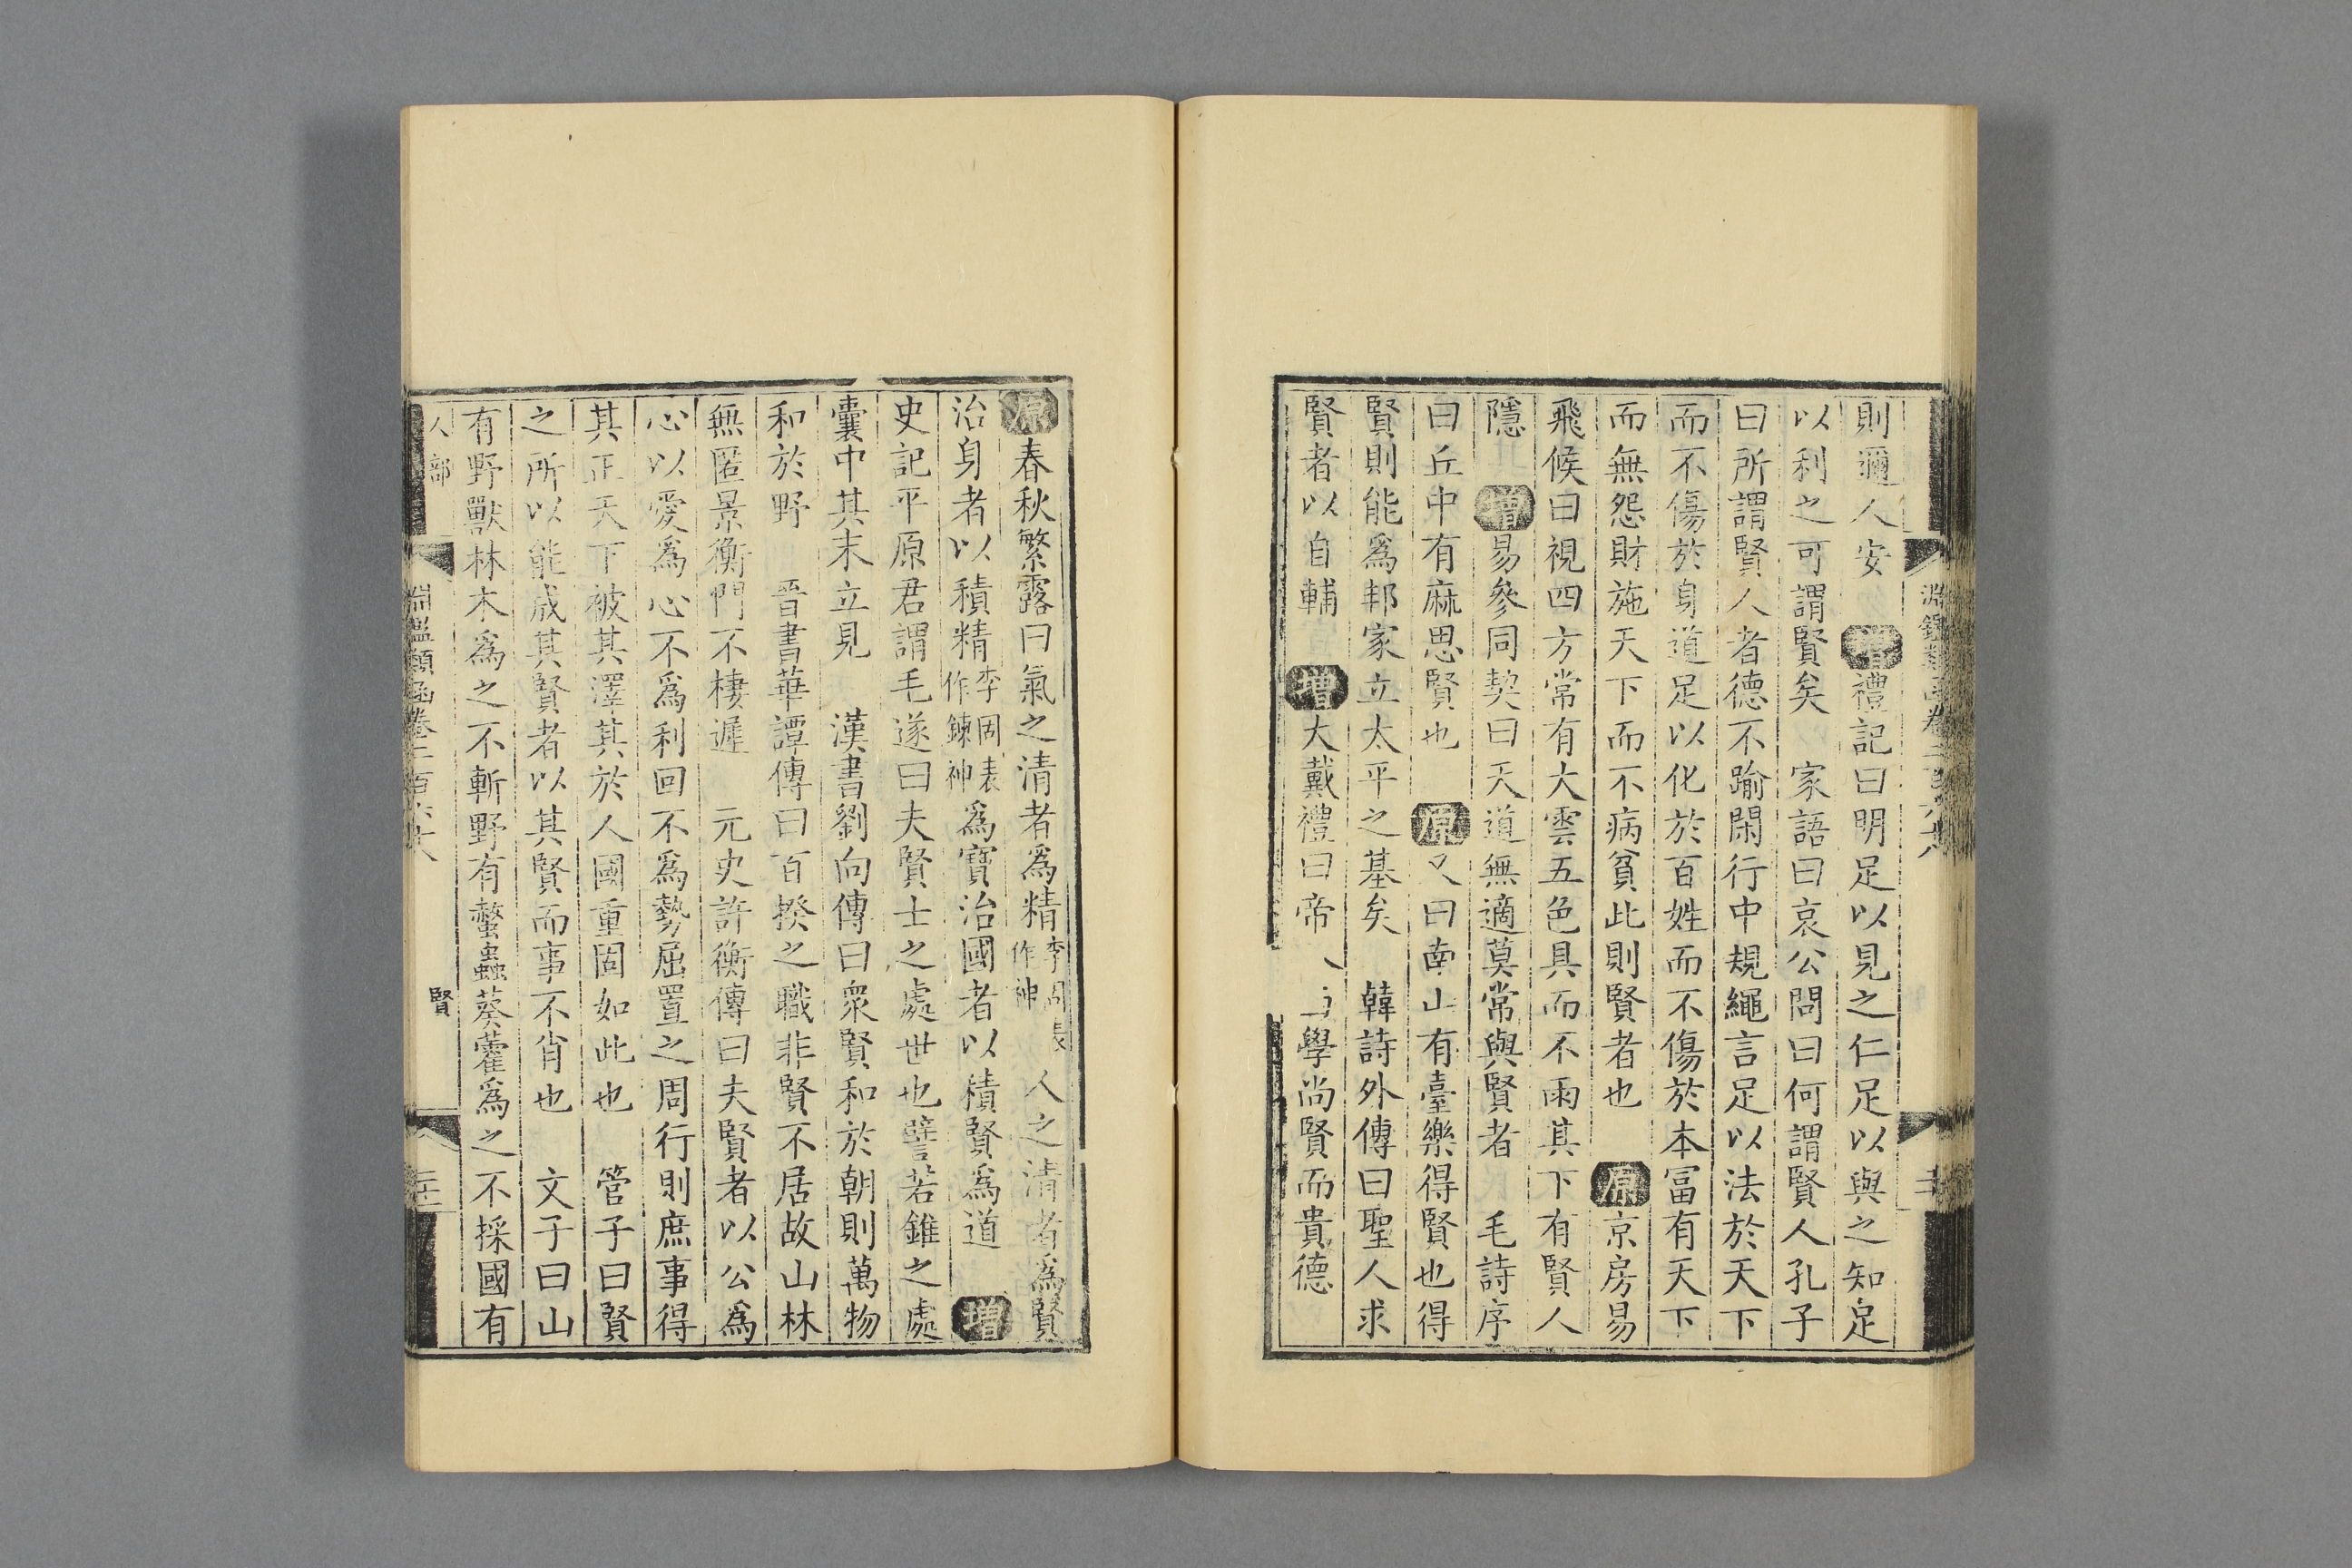 則邇人安 增禮記曰明足以見之仁足以與之知足
以利之可謂賢矣 家語曰哀公問曰何謂賢人孔子
曰所謂賢人者德不踰閑行中規繩言足以法於天下
而不傷於身道足以化於百姓而不傷於本冨有天下
而無怨財施天下而不病貧此則賢者也 原京房易
飛候曰視四方常有大雲五色具而不雨其下有賢人
隱 增易參同契曰天道無適莫常與賢者 毛詩序
曰丘中有麻思賢也 原又曰南山有臺樂得賢也得
賢則能爲邦家立太平之基矣 韓詩外傳曰聖人求
賢者以自輔 增大戴禮曰帝入 學尚賢而貴德
原春秋繁露曰氣之清者爲精李固表作神人之清者爲賢
治身者以積精李固表作鍊神爲寶治國者以積賢爲道 增
史記平原君謂毛遂曰夫賢士之處世也譬若錐之處
囊中其末立見 漢書劉向傳曰衆賢和於朝則萬物
和於野 晉書華譚傳曰百揆之職非賢不居故山林
無匿景衡門不棲遲 元史許衡傳曰夫賢者以公爲
心以愛爲心不爲利回不爲勢屈置之周行則庶事得
其正天下被其澤其於人國重固如此也 管子曰賢
之所以能成其賢者以其賢而事不肖也 文子曰山
有野獸林木爲之不斬野有螫蟲葵藿爲之不採國有
人部
淵鑑類函卷二百六十八
賢